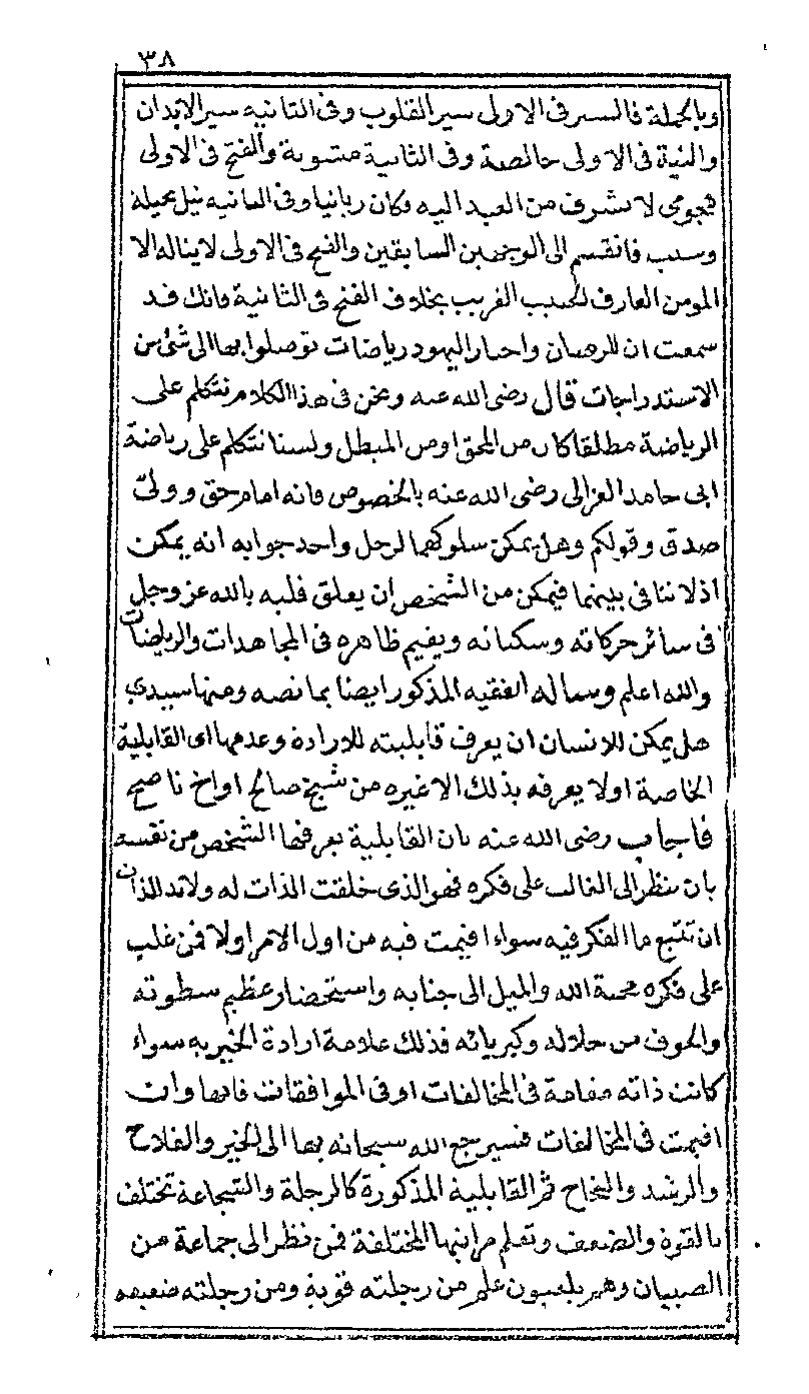 ٣٨
وبالجملة فالسير فى الاولى سير القلوب وفى الثانيه سير الابدان
والنية فى الاولى خالصة وفى الثانية مشوبة والفتح فى الاولى
هجومى لا تشرف من العبد اليه وكان ربانيا وفى الثانيه نيل بحيلة
وسبب فانقسم الى الوجهين السابقين والفتح فى الاولى لا يناله الا
المومن العارف الحبيب القريب بخلاف الفتح فى الثانية فانك قد
سمعت ان للرهبان واحبار اليهود رياضات توصلوا بها الى شئ من
الاستدراجات قال رضى الله عنه ونحن فى هذا الكلام نتكلم على
الرياضة مطلقا كان من المحق او من المبطل ولسنا نتكلم على رياضة
ابى حامد الغزالى رضى الله عنه بالخصوص فانه امام حق وولىّ
صدق وقولكم وهل يمكن سلوكهما لرجل واحد جوابه انه يمكن
اذ لا تنافى بينهما فيمكن من الشخص ان يعلق قلبه بالله عز وجل
فى سائر حركاته وسكناته ويقيم ظاهره فى المجاهدات والرياضات
والله اعلم وساله الفقيه المذكور ايضا بما نصه ومنها سيدي
هل يمكن للانسان ان يعرف قابليته للارادة وعدمها اى القابلية
الخاصة او لا يعرفه بذلك الا غيره من شيخ صالح او اخ ناصح
فاجاب رضى الله عنه بان القابلية يعرفها الشخص من نفسه
بان ينظر الى الغالب على فكره فهو الذى خلقت الذات له ولابد للذات
ان تتبع ما الفكر فيه سواء اقيمت فيه من اول الامر اولا فمن غلب
على فكره محبة الله والميل الى جنابه واستحضار عظيم سطوته
والخوف من جلاله وكبريائه فذلك علامة ارادة الخير به سواء
كانت ذاته مقامة فى المخالفات او فى الموافقات فانها وان
اقيمت فى المخالفات فسيرجع الله سبحانه بها الى الخير والفلاح
والرشد والنجاح ثم القابلية المذكورة كالرجلة والشجاعة تختلف
بالقوة والضعف وتعلم مراتبها المختلفة فمن نظر الى جماعة من
الصبيان وهم يلعبون علم من رجلته قوية ومن رجلته ضعيفه